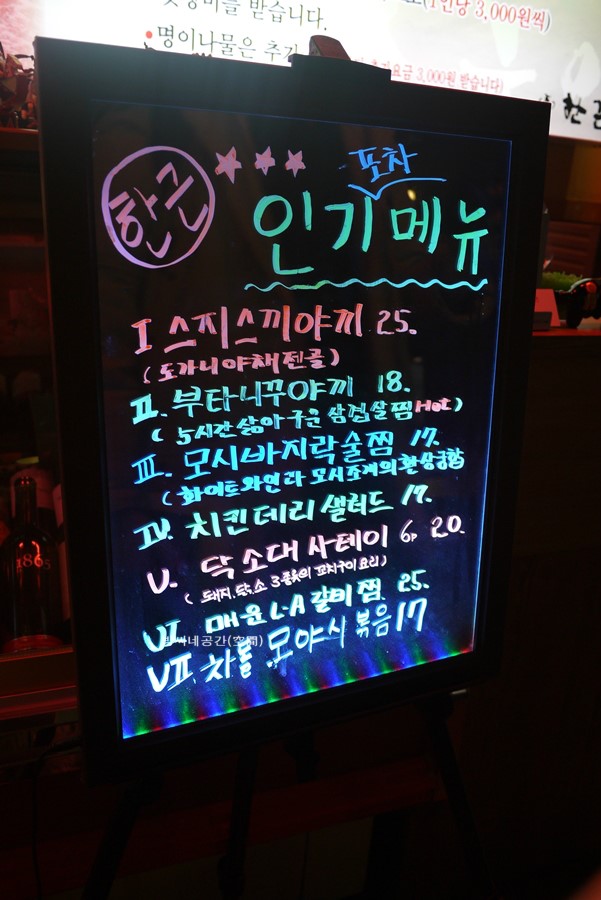 (1인당 3,000원씩)
받습니다.
•명이나물은 추가
추가요금 3,000원 받습니다)
한근
★★★
포차
인기메뉴
I 스지스끼야끼 25.
(도가니야채전골)
II. 부타니꾸야끼 18.
(5시간삶아구운 삼겹살찜 Hot)
III. 모시바지락술찜 17.
(화이트와인과 모시조개의 환상궁합)
IV. 치킨데리샐러드 17.
V. 닥소대 사테이 6p 20.
(돼지.닭.소 3품목의 꼬치구이요리)
VI 매운 L·A갈비찜. 25.
VII. 차돌 모야시 볶음 17
네공간(空間)
1865